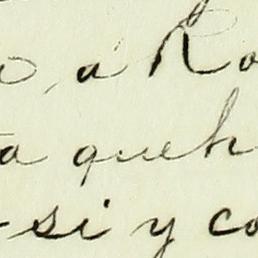 o, a Ro
a queh
si y co